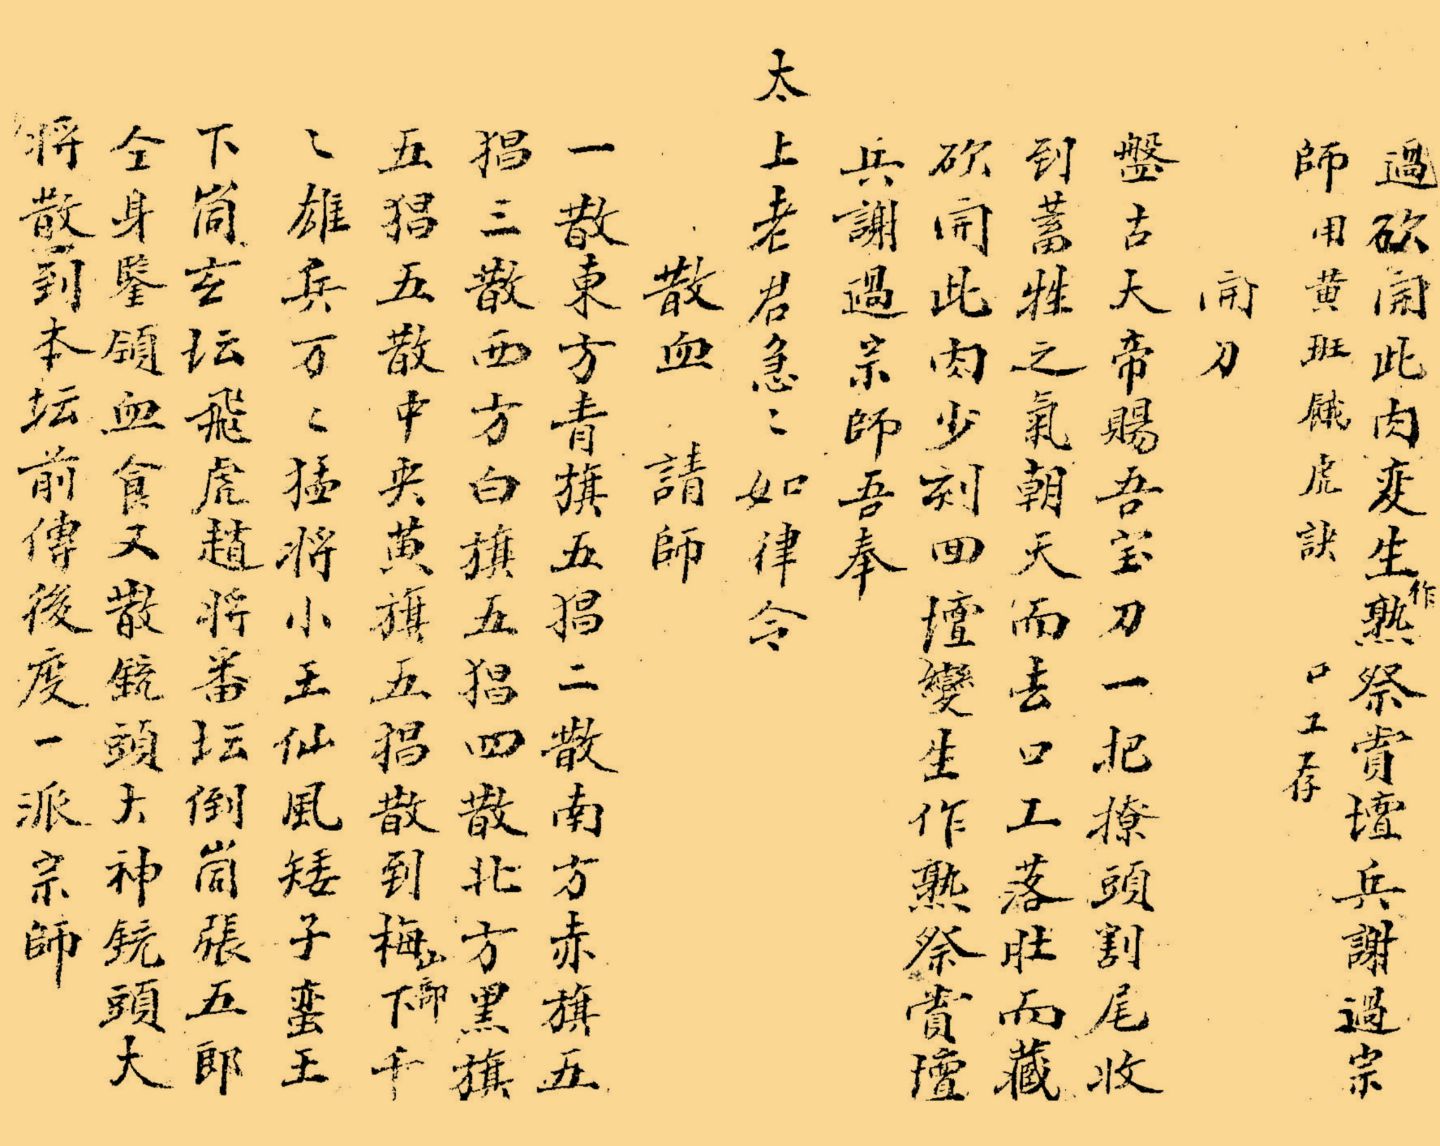 過砍開此肉変生作熟祭賞壇兵謝過宗
師 用黄班餓虎訣 口工存
開刀
盤古大帝賜吾宝刀一把撩頭割尾收
到蓄牲之氣朝天而去口工落肚而藏
砍開此肉少刻回壇變生作熟祭賞壇
兵謝過宗師吾奉
太上老君急〻如律令
散血 請師
一散東方青旗五猖二散南方赤旗五
猖三散西方白旗五猖四散北方黑旗
五猖五散中央黄旗五猖散到梅山部下千
〻雄兵万〻猛将小王仙風矮子蛮王
下峝玄坛飛虎趙将番坛倒峝張五郎
仝身鑒領血食又散銃頭大神銃頭大
将散到本坛前傳後度一派宗師